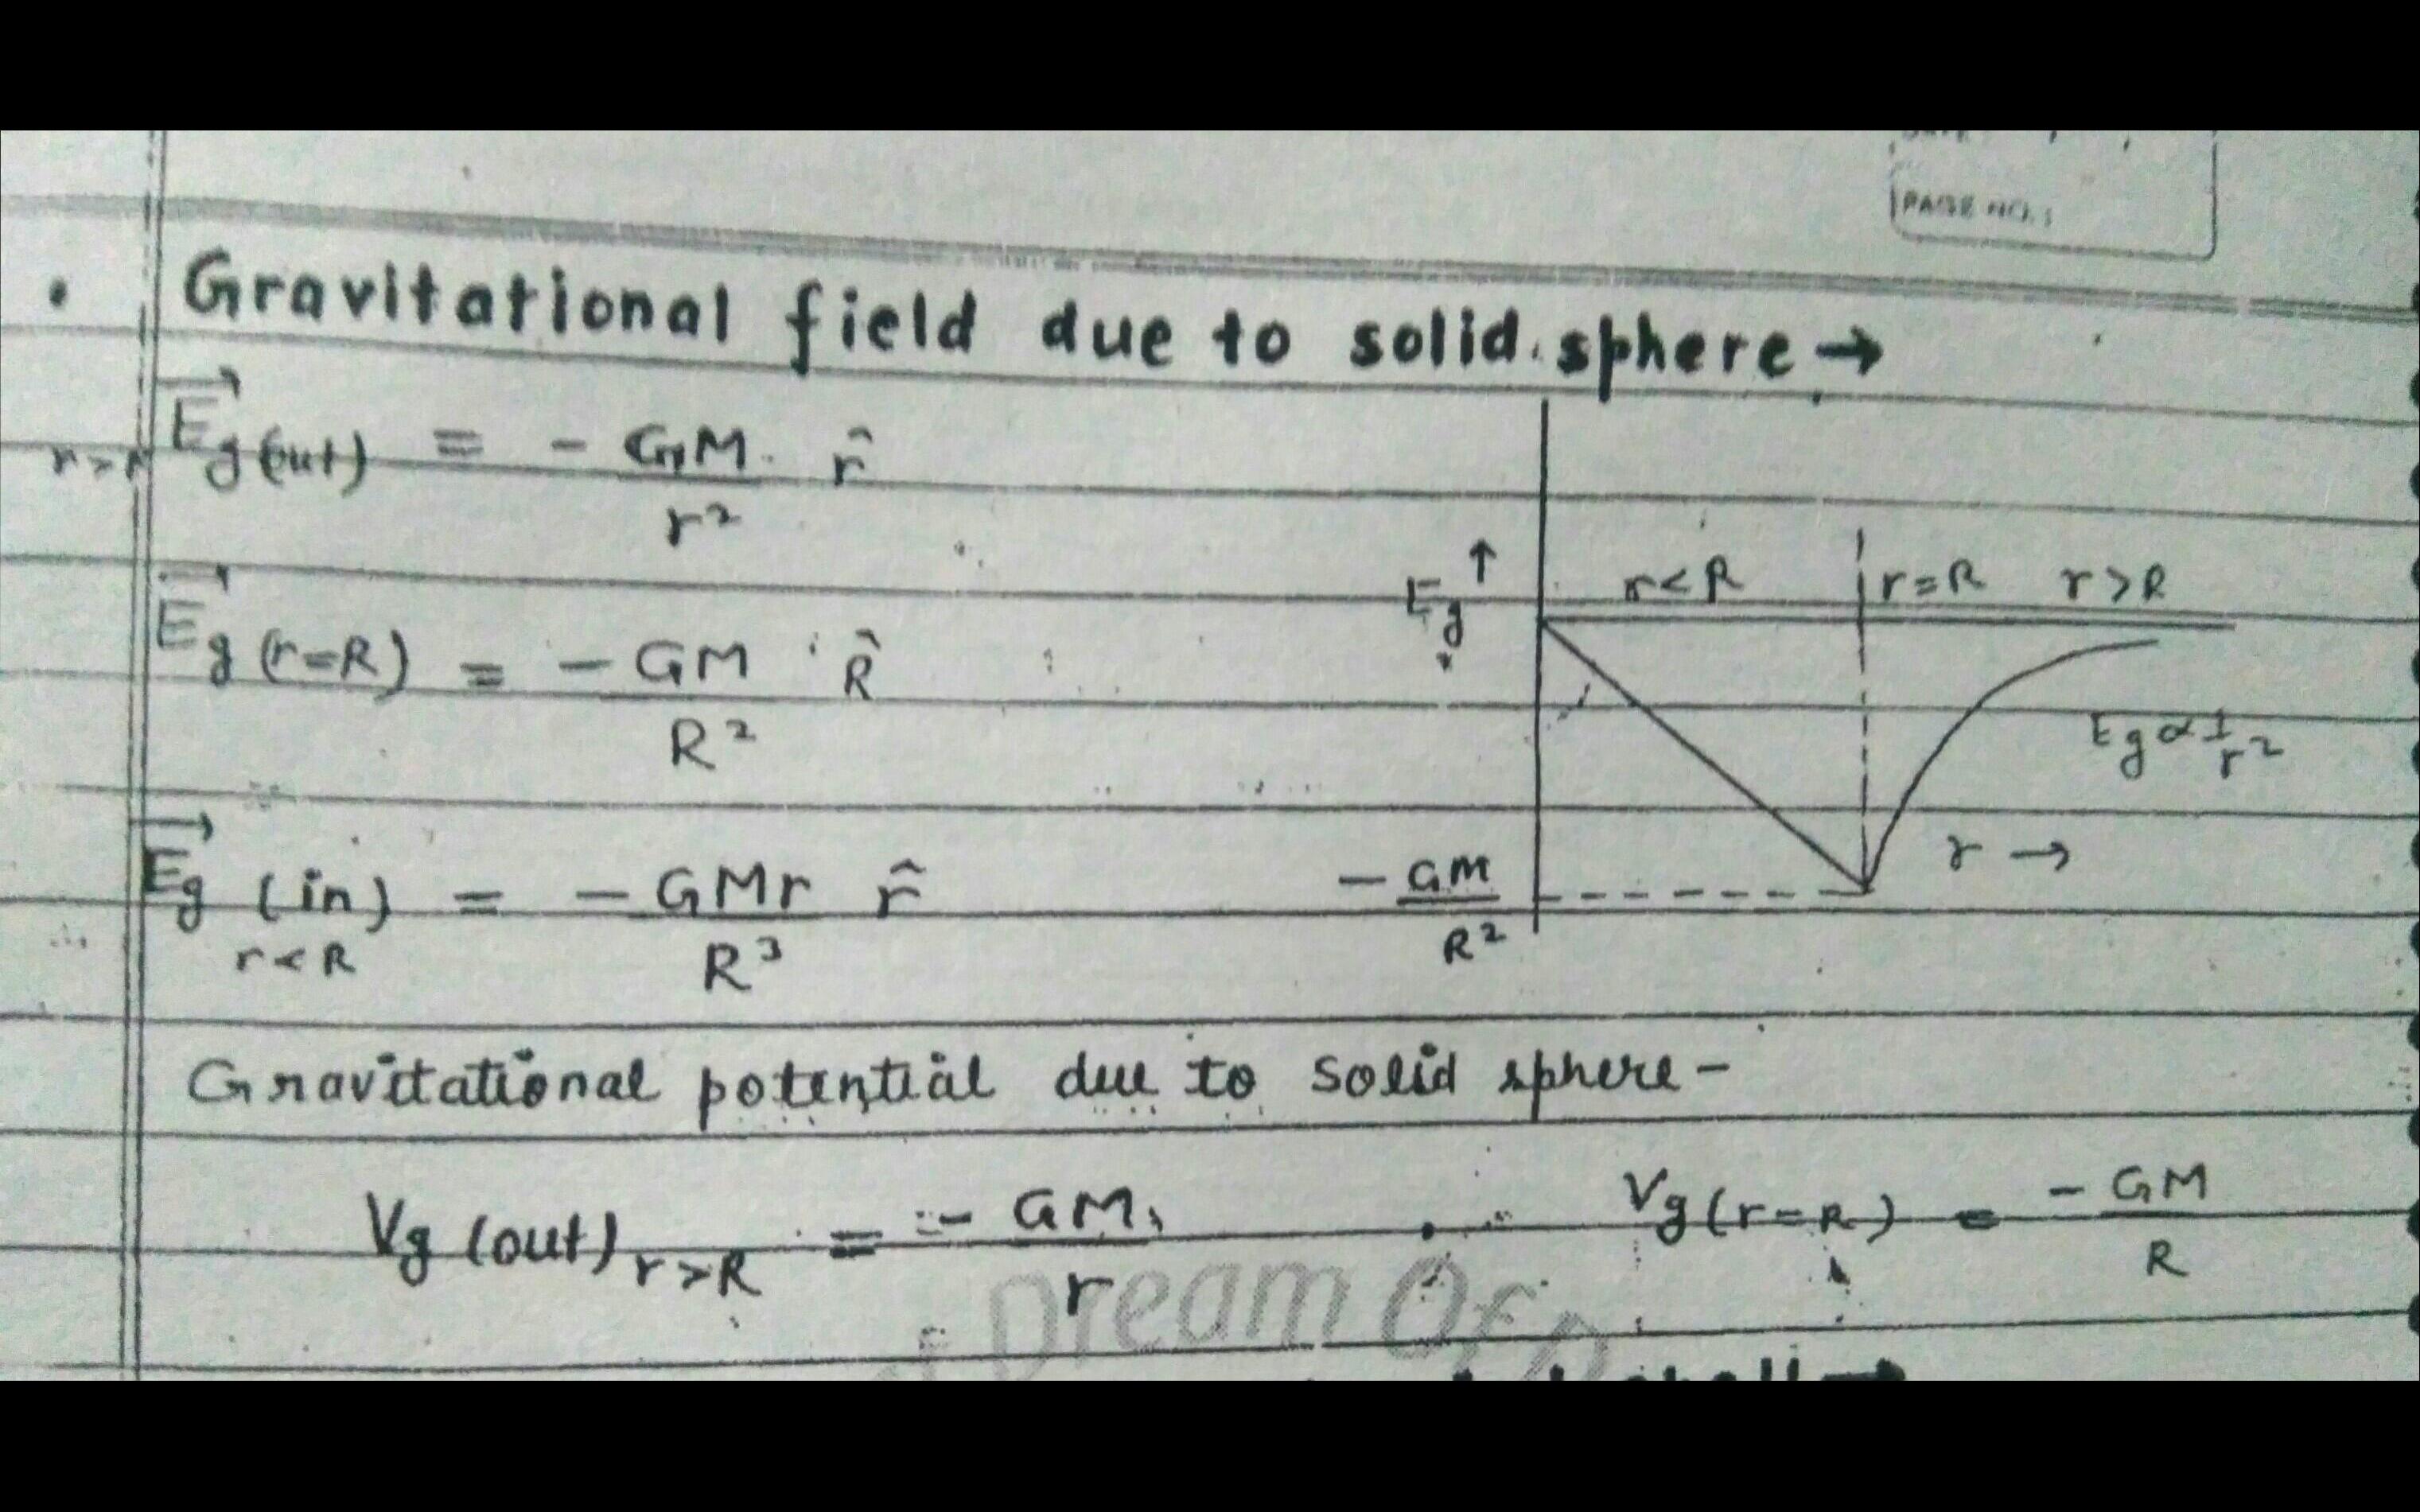 PAGE NO.:
• Gravitational field due to solid sphere →
r>R E⃗g(out) = - GM/r² r̂
E⃗g (r=R) = - GM/R² R̂
E⃗g (in) r<R = - GMr/R³ r̂
Eg ↑
r<R r=R r>R
Eg ∝ 1/r²
r →
- GM/R²
Gravitational potential due to solid sphere -
Vg (out) r>R = - GM/r Vg(r=R) = - GM/R
Dream Of